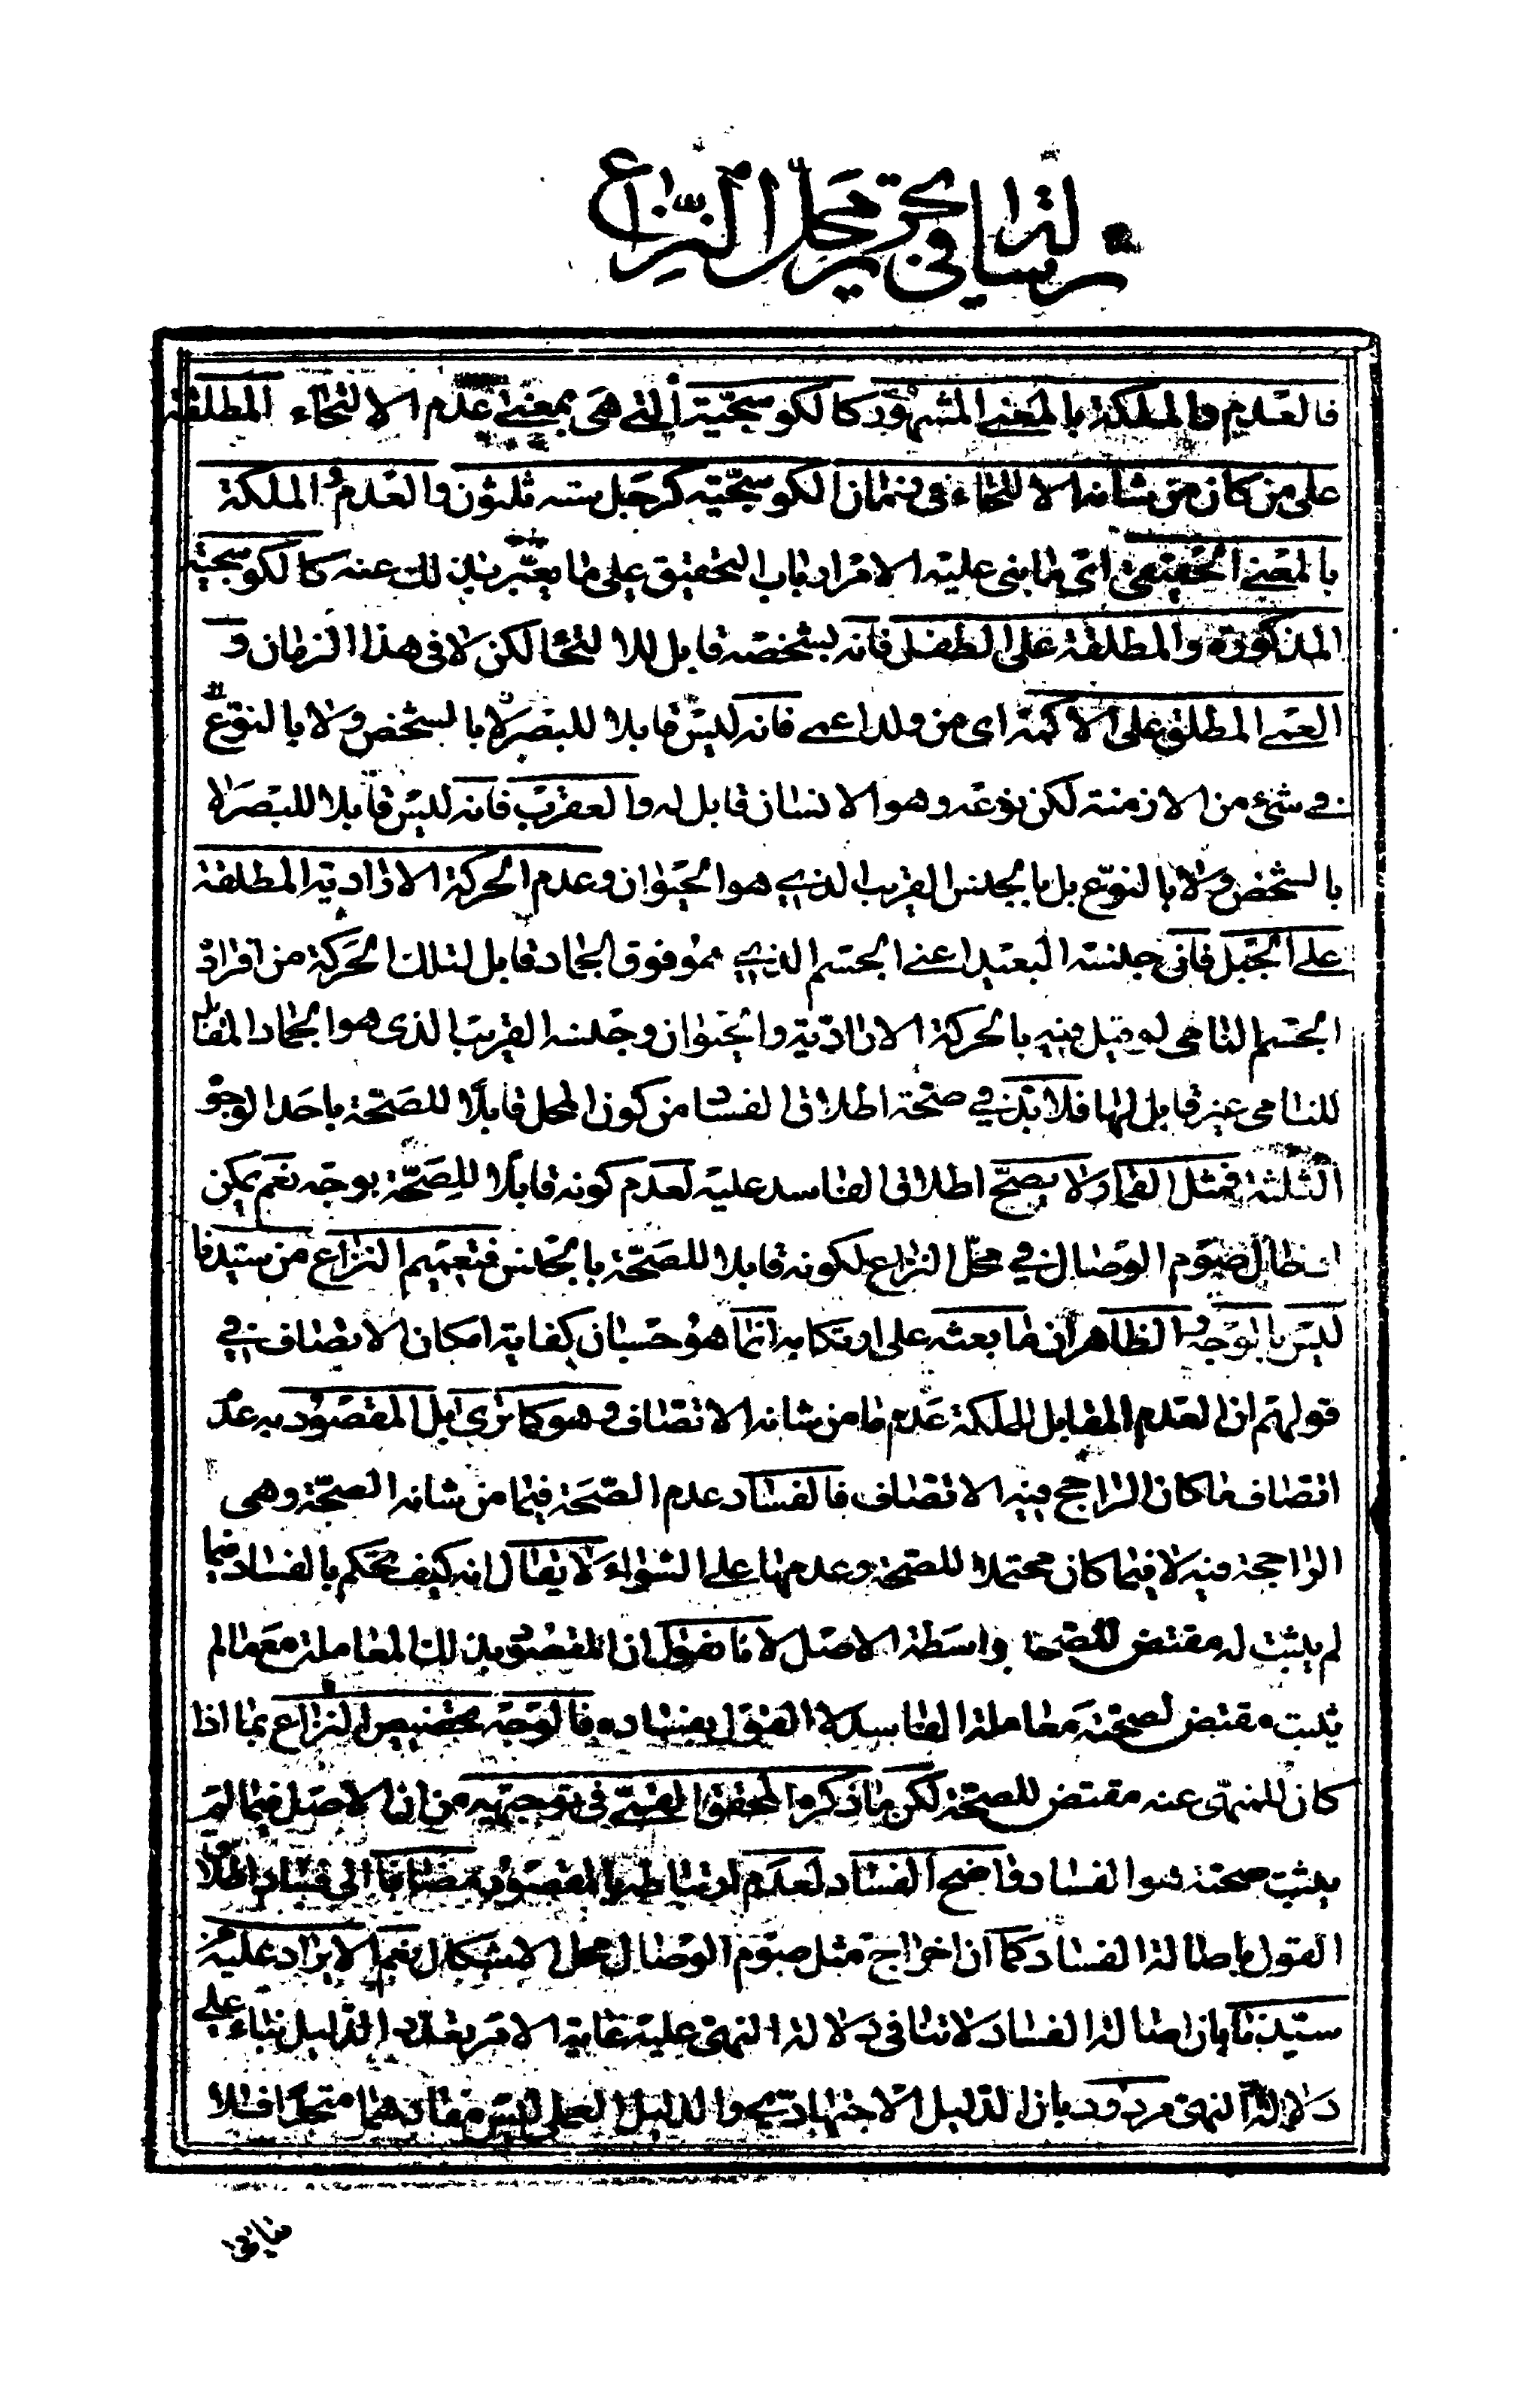 رسالة في تحرير محل النزاع
فالعدم والملكة بالمعنى المشهور كالكوسجية التي هي بمعنى عدم الالتحاء المطلقة
على من كان من شانه الالتحاء في زمان الكوسجية كرجل سنه ثلثون والعدم والملكة
بالمعنى الحقيقي اي ما بنى عليه الامر ارباب التحقيق على ما يعبر بذلك عنه كالكوسجية
المذكورة والمطلقة على الطفل فانه بشخصه قابل للالتحا لكن لا في هذا الزمان و
العمى المطلق على الاكمه اى من ولد اعمى فانه ليس قابلا للبصر لا بالشخص ولا بالنوع
في شيء من الازمنة لكن نوعه وهو الانسان قابل له والعقرب فانه ليس قابلا للبصر لا
بالشخص ولا بالنوع بل بالجنس القريب الذي هو الحيوان وعدم الحركة الارادية المطلقة
على الجبل فان جنسه البعيد اعنى الجسم الذي هو فوق الجماد قابل لتلك الحركة من افراد
الجسم النامى لو قيل فيه بالحركة الارادية والحيوان وجنسه القريب الذى هو الجماد المقابل
للنامى غير قابل لها فلا بد في صحة اطلاق الفسا من كون المحل قابلا للصحة باحد الوجو
الثلثة فمثل القمار لا يصح اطلاق الفاسد عليه لعدم كونه قابلا للصحة بوجه نعم يمكن
ادخال صوم الوصال في محل النزاع لكونه قابلا للصحة بالجنس فتعميم النزاع من سيدنا
ليس بالوجه الظاهر ان ما بعثه على ارتكابه انما هو حسبان كفاية امكان الاتصاف في
قولهم ان العدم المقابل للملكة عدم ما من شانه الاتصاف وهو كما ترى بل المقصود به عد
اتصاف ما كان الراجح فيه الاتصاف فالفساد عدم الصحة فيما من شانه الصحة وهى
الراجحة فيه لا فيما كان محتملا للصحة وعدمها على السواء لا يقال انه كيف يحكم بالفساد فيما
لم يثبت له مقتض للصحة بواسطة الاصل لانا نقول ان المقصود بذلك المعاملة مع ما لم
يثبت مقتض لصحته معاملة الفاسد لا القول بفساده فالوجه تخصيص النزاع بما اذا
كان للمنهى عنه مقتض للصحة لكن ما ذكره المحقق القمي في توجيهه من ان الاصل فيما لم
يثبت صحته هو الفساد واضح الفساد لعدم ارتباطه بالمقصود مضافا الى فساد اطلاق
القول باصالة الفساد كما ان اخراج مثل صوم الوصال محل الاشكال نعم الايراد عليه من
سيدنا بان اصالة الفساد لا تنافى دلالة النهى عليه غاية الامر تعدد الدليل بناء على
دلالة النهى مردود بان الدليل الاجتهادي والدليل العملي ليس مفادهما متحدا فلا